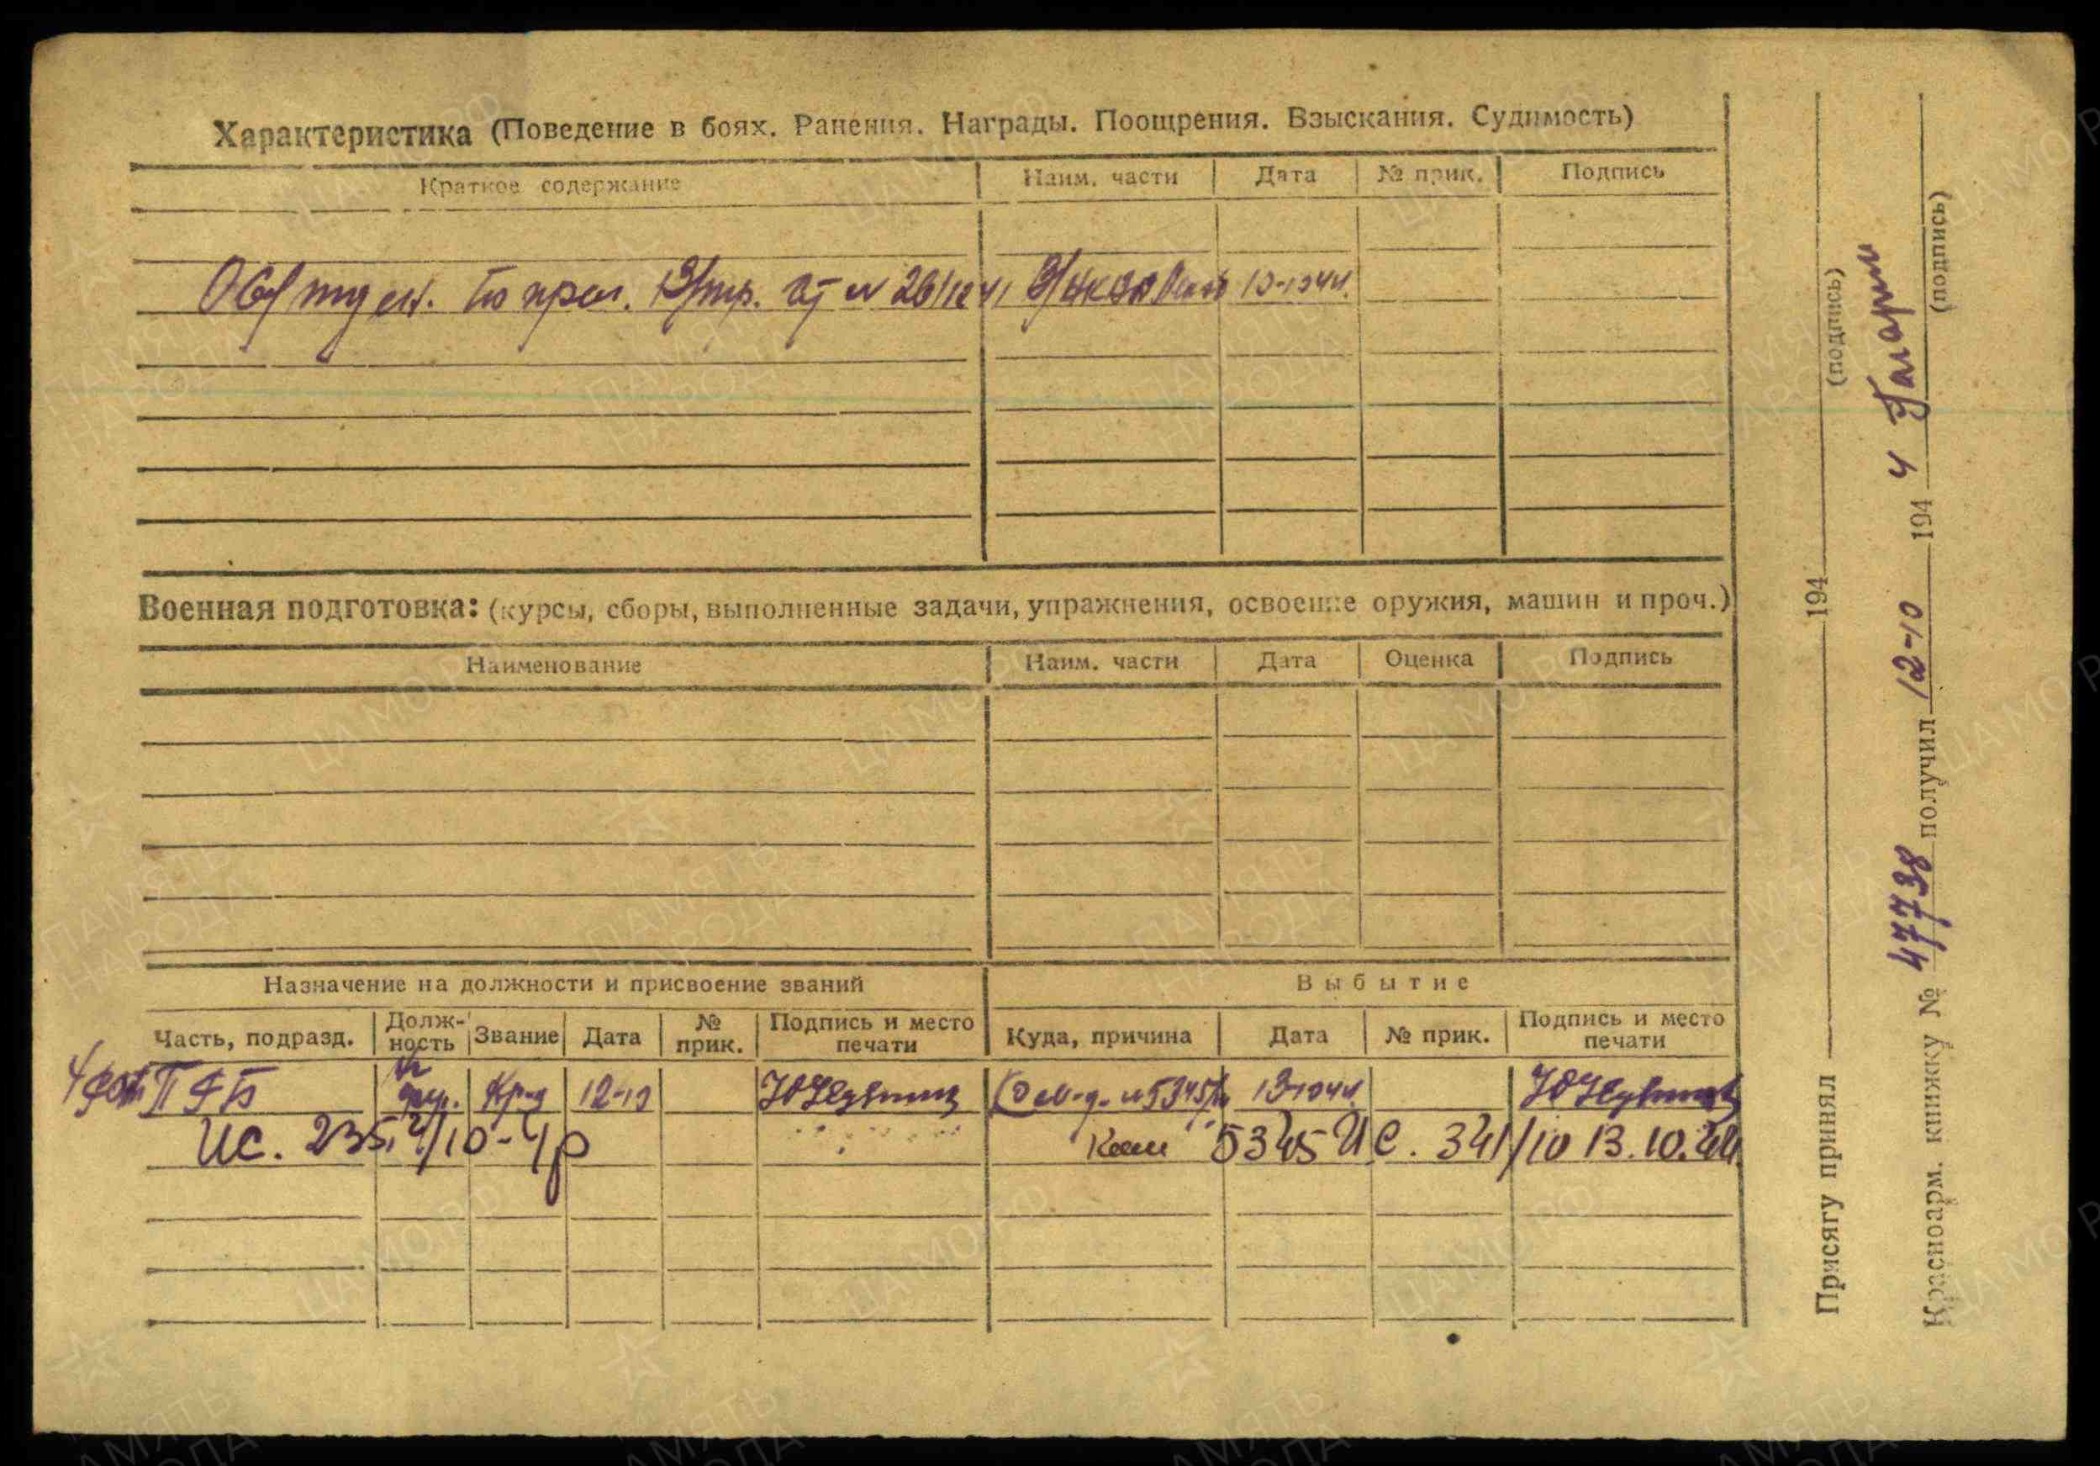 Характеристика (Поведение в боях. Ранения. Награды. Поощрения. Взыскания. Судимость)
Краткое содержание Наим. части Дата № прик. Подпись
13-10 44.
Военная подготовка: (курсы, сборы, выполненные задачи, упражнения, освоение оружия, машин и проч.)
Наименование Наим. части Дата Оценка Подпись
Назначение на должности и присвоение званий Выбытие
Часть, подразд. Долж-ность Звание Дата № прик. Подпись и место печати Куда, причина Дата № прик. Подпись и место печати
12-10 13-10 44
ИС. 235 /10-4р 5345 ИС. 341/10 13.10.44
Присягу принял 194 (подпись)
Красноарм. книжку № 47738 получил 12-10 194 4 (подпись)
ПАМЯТЬ НАРОДА
ЦАМО.РФ